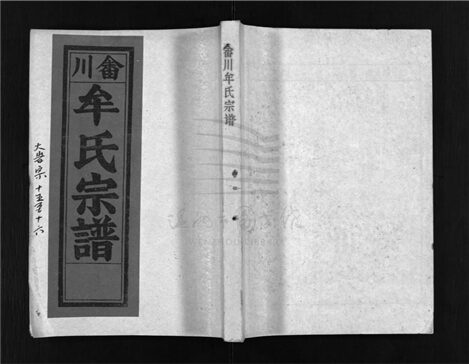 畬川
牟氏宗譜
大岙宗 十五至十六
畬川牟氏宗譜